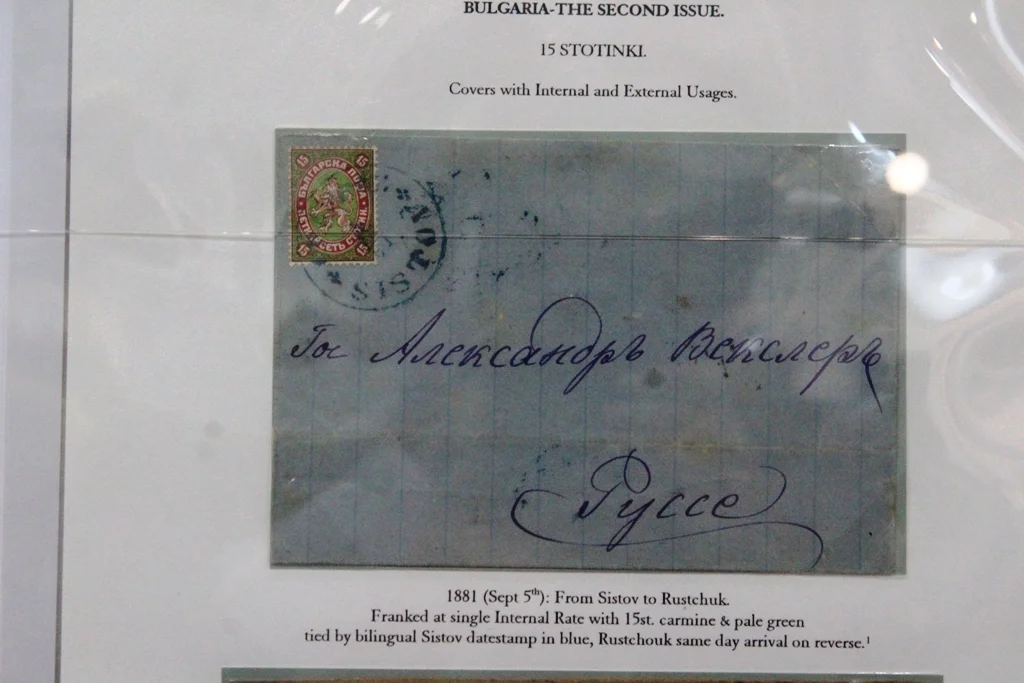 BULGARIA-THE SECOND ISSUE.
15 STOTINKI.
Covers with Internal and External Usages.
15 15
БЪЛГАРСКА ПОЩА
15 15
SISTOV
Гос Александръ Векслеръ
Руссе
1881 (Sept 5th): From Sistov to Rustchuk.
Franked at single Internal Rate with 15st. carmine & pale green
tied by bilingual Sistov datestamp in blue, Rustchouk same day arrival on reverse.1